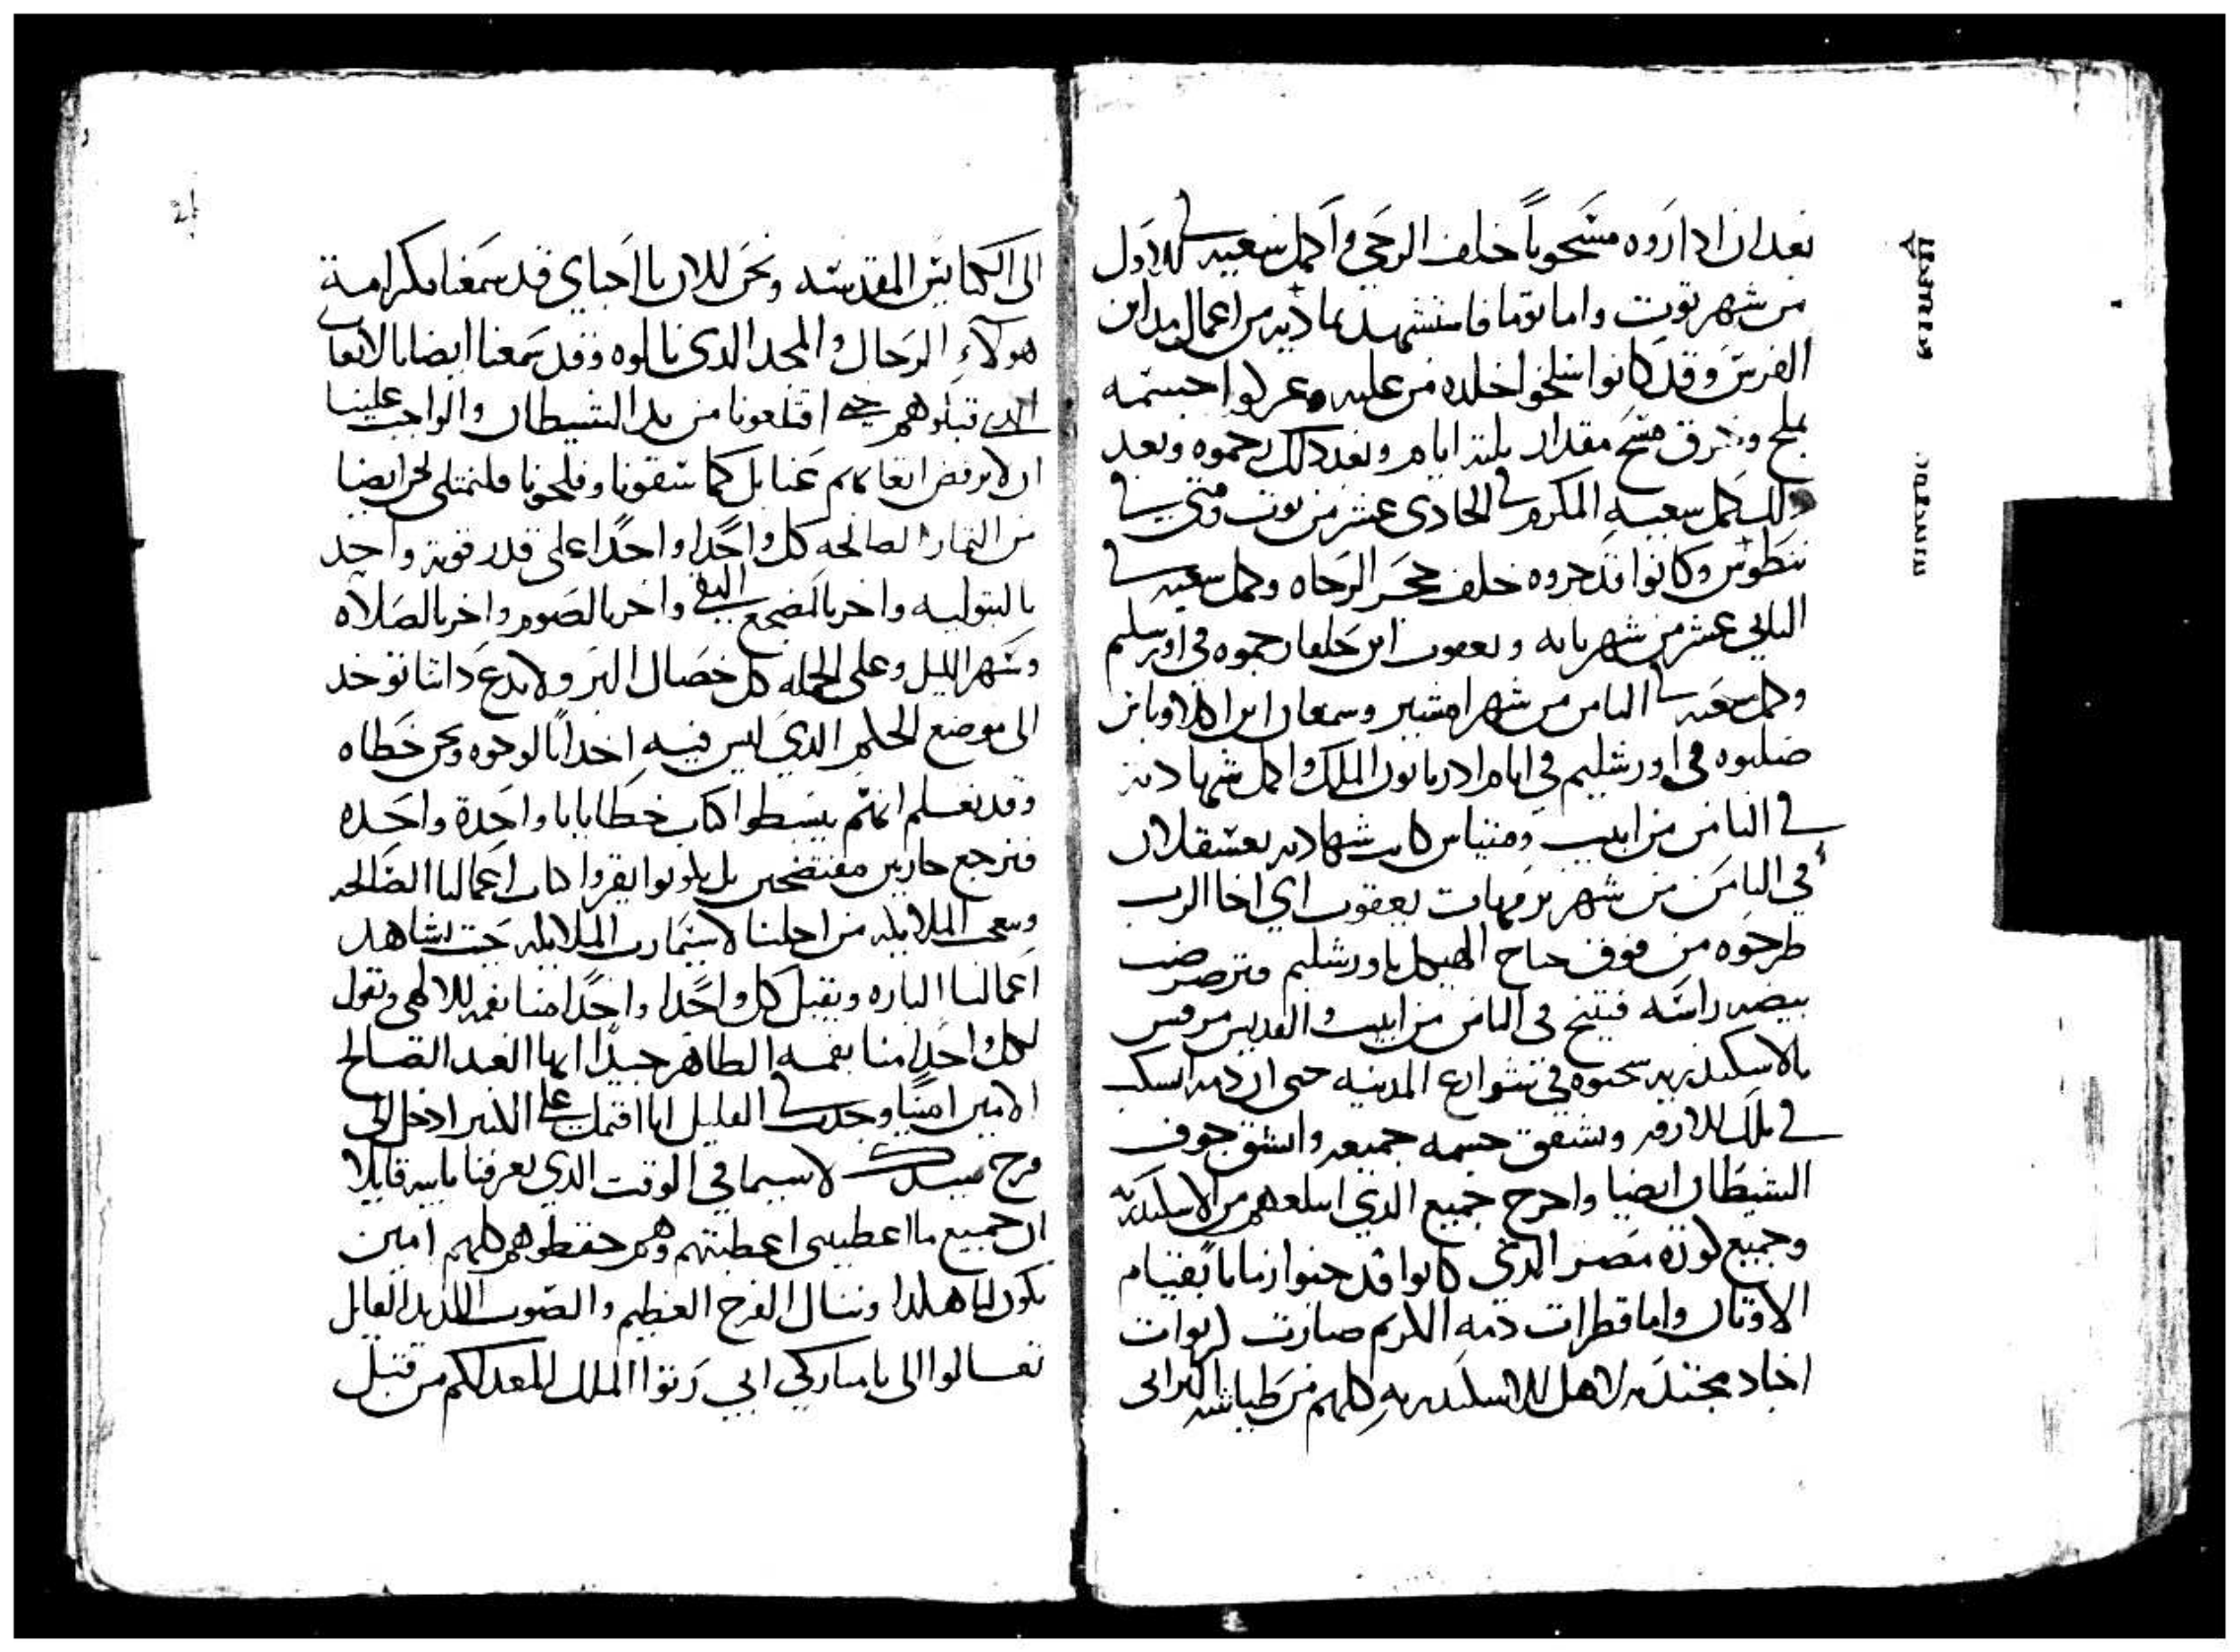 بعد ان اداروه مسحوبا خلف الرحي واكمل سعيه في الاول
من شهر توت واما توما فاستشهد بمادين من اعمال مداين
الفرس وقد كانوا سلخوا جلده من عليه وعركوا جسمه
بملح وخرق مسح مقدار ثلثة ايام وبعد ذلك رجموه وبعد
ذلك كمل سعيه المكرم في الحادي عشر من توت ومتى في
نيطوس وكانوا قد جروه خلف حجر الرحاه وكمل سعيه في
الثاني عشر من شهر بابه ويعقوب ابن حلفا رجموه في اورشليم
وكمل سعيه في الثامن من شهر امشير وسمعان ابن اكلاوبا
صلبوه في اورشليم في ايام ادريانوس الملك واكمل شهادته
في الثامن من ابيب ومتياس كانت شهادته بعسقلان
في الثامن من شهر برمهات يعقوب اي اخا الرب
طرحوه من فوق جناح الهيكل باورشليم
راسه فتنيح في الثامن من ابيب والقديس مرقس
بالاسكندريه سحبوه في شوارع المدينه حتى ان دمه انسكب
في تلك الارض وتشقق جسمه جميعه وانشق جوف
الشيطان ايضا واخرج جميع الذي ابتلعهم من الاسكندريه
وجميع كورة مصر الذي كانوا قد
الاوثان واما قطرات دمه الكريم صارت ربوات
اجناد مجنده لاهل الاسكندريه كلهم من طياشه البراني
الى الكنايس المقدسه ونحن الان يا احباي قد سمعنا بكرامة
هولاء الرجال والمجد الذي نالوه وقد سمعنا ايضا بالاتعاب
الذي قبلوهم حتى اقتلعونا من يد الشيطان والواجب علينا
ان لا نرفض اتعابهم عنا بل كما سقونا وفلحونا فلنمتلي نحن ايضا
من الثمار الصالحه كل واحدا واحدا على قدر قوته واحد
بالبتوليه واخر بالمضجع النقي واخر بالصوم واخر بالصلاه
وسهر الليل وعلى الجمله كل خصال البر ولا ندع ذاتنا توخد
الى موضع الحكم الذي ليس فيه اخذا بالوجوه ونحن خطاه
وقد نعلم انهم يبسطوا كتاب خطايانا واحدة واحده
فنرجع حازنين مفتضحين بل يكونوا يقروا كتاب اعمالنا الصالحه
وسعى الملايكه من اجلنا لاسيما رب الملايكه حيث يشاهد
اعمالنا الباره ويقبل كل واحدا واحدا منا بفمه الالهي ويقول
لكل احدا منا بفمه الطاهر جيدا ايها العبد الصالح
الامين امينا وجدت في القليل انا اقيمك على الكثير ادخل الى
فرح سيدك لاسيما في الوقت الذي يعرفنا بابيه قايلا
ان جميع ما اعطيتني اعطيتهم وهم حفظوهم كلهم امين
يكون لنا هكذا وننال الفرح العظيم والصوت اللذيذ القايل
تعالوا الى يا مباركي ابي رثوا الملك المعد لكم من قبل